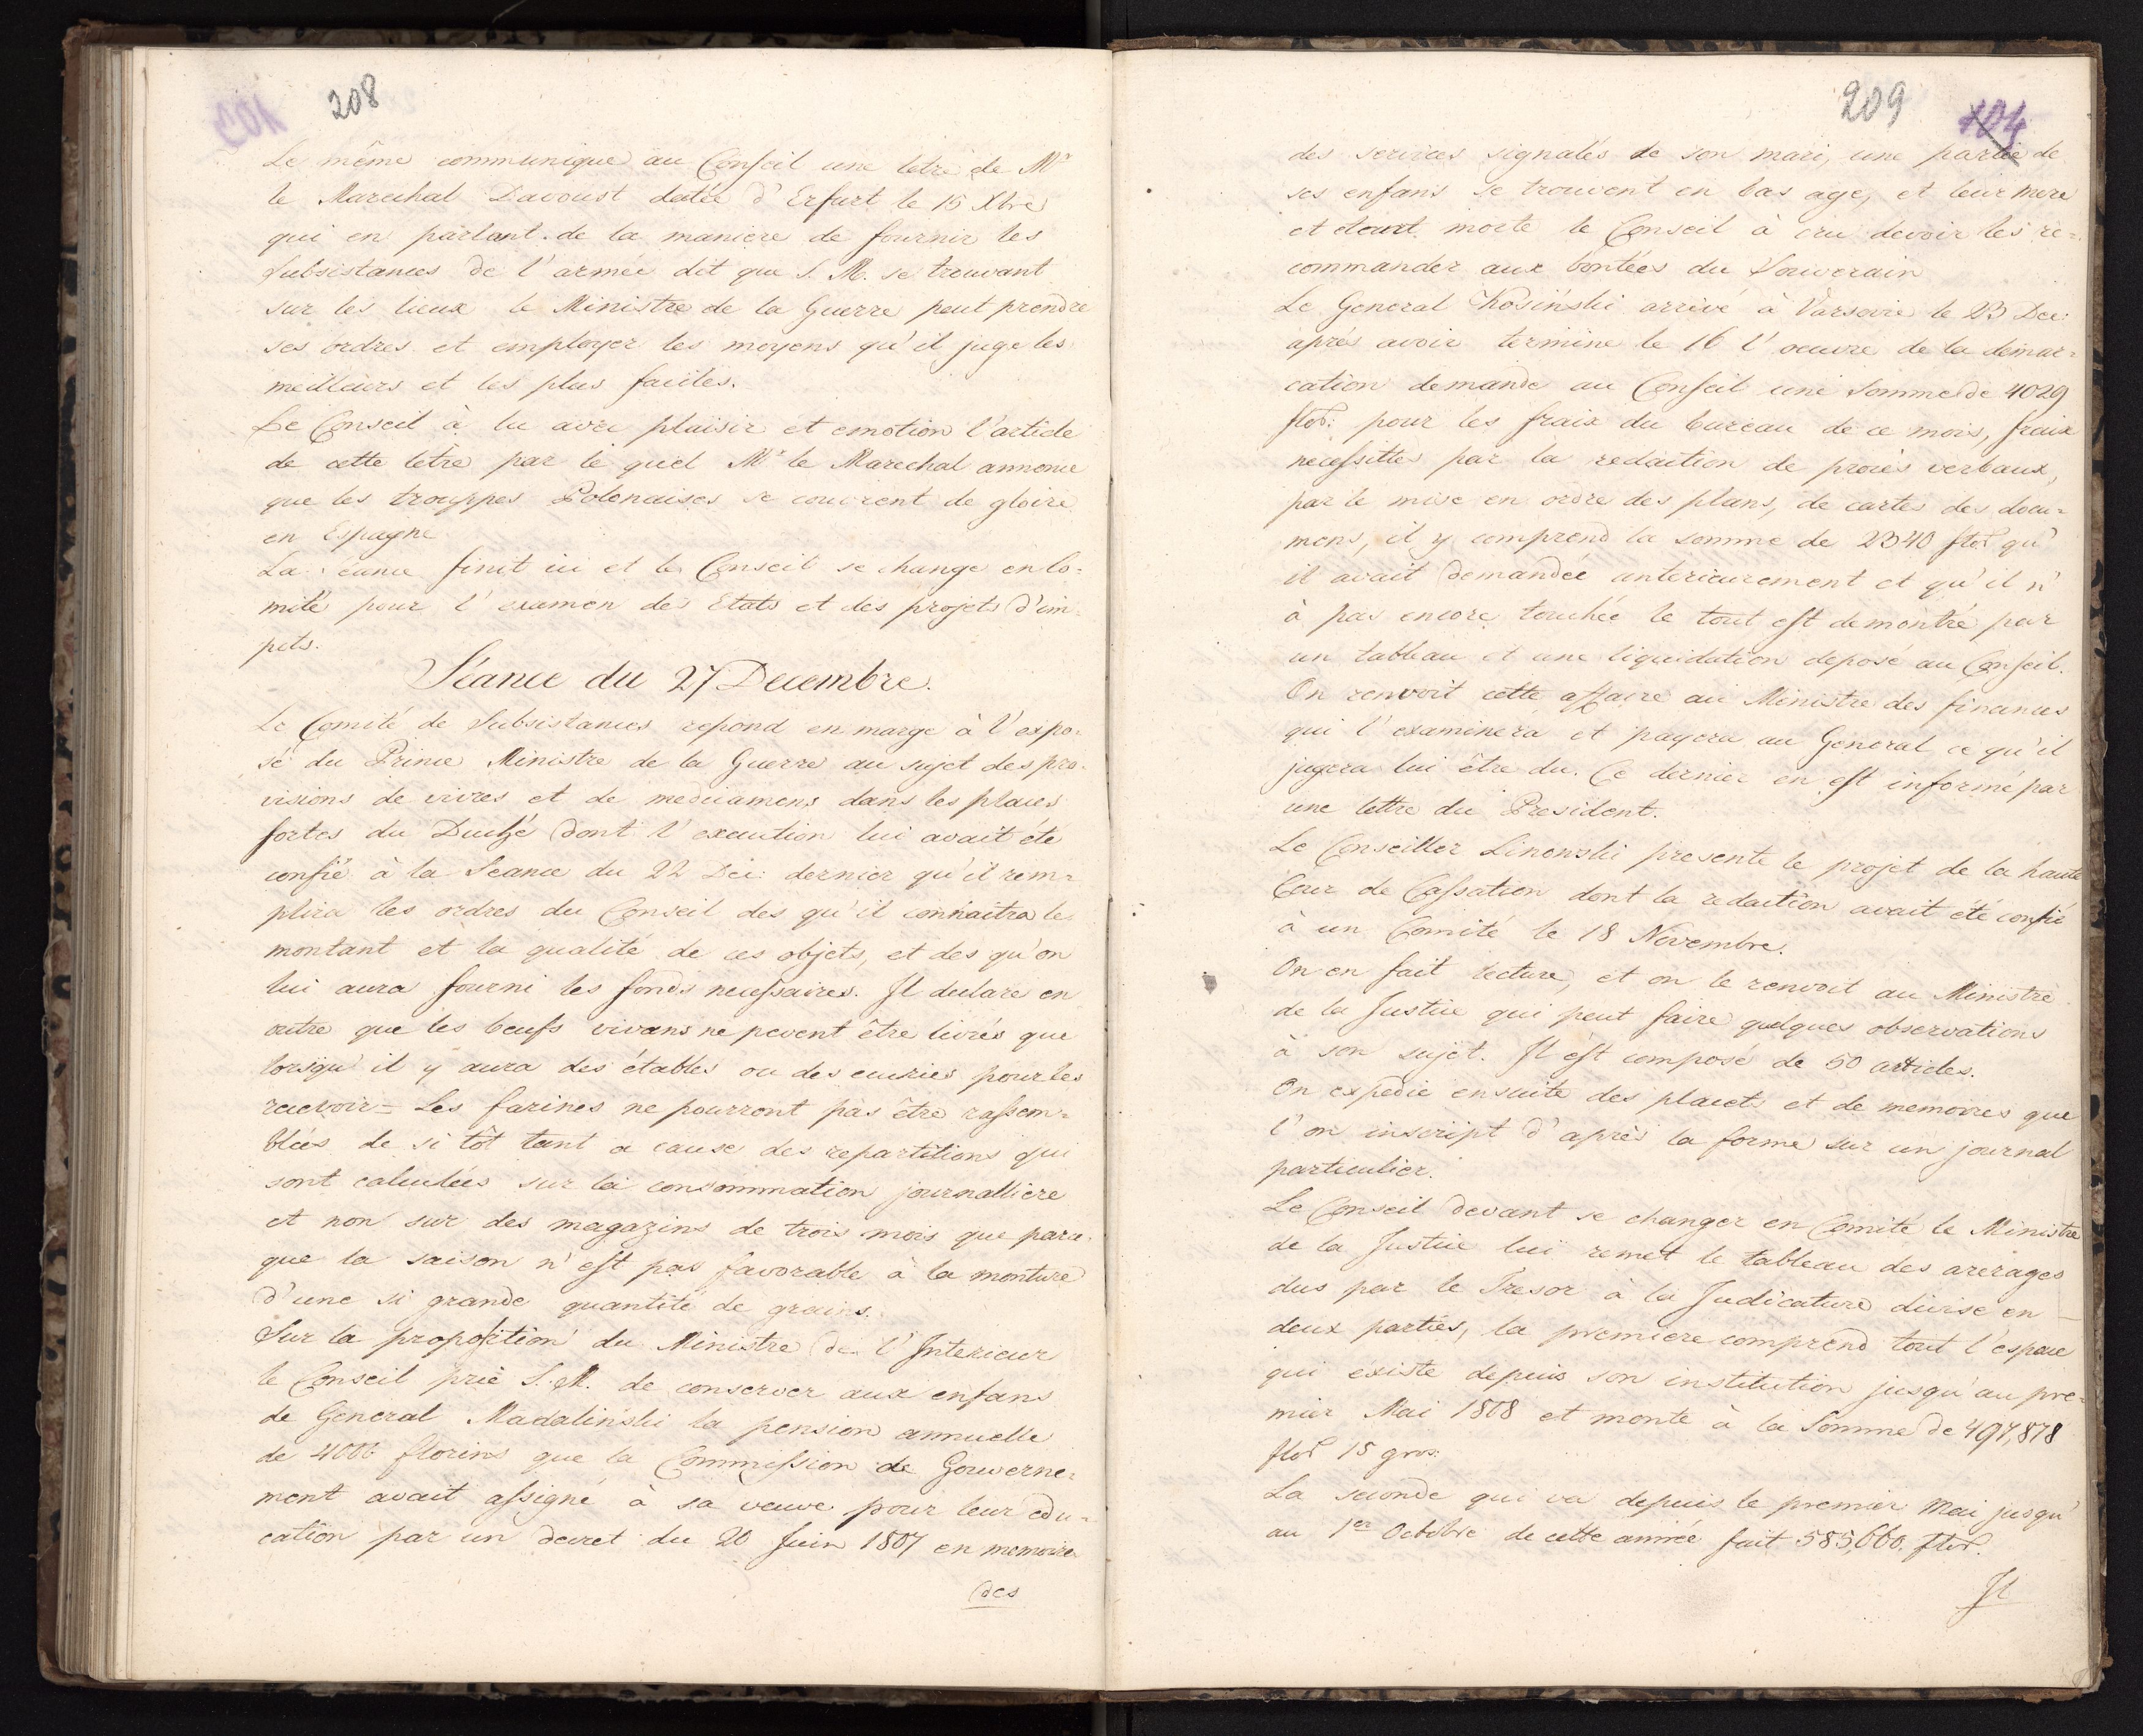 208
Le même communique au Conseil une letre de Mr
le Marechal Davoust datée d'Erfurt le 15 Xbre
qui en parlant de la maniere de fournir les
subsistances de l'armée dit que S. M. se trouvant
sur les lieux le Ministre de la Guerre peut prendre
ses ordres et employer les moyens qu'il juge les
meilleurs et les plus faciles.
Le Conseil à lu avec plaisir et emotion l'article
de cette letre par le quel Mr le Marechal annonce
que les trouppes Polonaises se couvrent de gloire
en Espagne
La séance finit ici et le Conseil se change en Co=
mité pour l'examen des Etats et des projets d'im=
pots.
Séance du 27 Decembre.
Le Comité de Subsistances repond en marge à l'expo=
sé du Prince Ministre de la Guerre au sujet des pro=
visions de vivres et de medicamens dans les places
fortes du Duché dont l'execution lui avait éte
confié à la Seance du 22 Dec: dernier qu'il rem=
plira les ordres du Conseil des qu'il connaitra le
montant et la qualité de ces objets, et des qu'on
lui aura fourni les fonds necessaires. Il declare en
outre que les boeufs vivans ne pevent être livrés que
lorsqu'il y aura des étables ou des ecuries pour les
recevoir = Les farines ne pourront pas être rassem=
blées de si tôt tant a cause des repartitions qui
sont calculées sur la consommation journalliere
et non sur des magazins de trois mois que parce
que la saison n'est pas favorable à la monture
d'une si grande quantité de grains.
Sur la proposition du Ministre de l'Interieur
le Conseil prie S. M. de conserver aux enfans
de General Madaliński la pension annuelle
de 4000 florins que la Commission de Gouverne=
ment avait assigné à sa veuve pour leur edu=
cation par un decret du 20 Juin 1807 en memoire
des
209
104
des services signalés de son mari, une partie de
ses enfans se trouvent en bas age, et leur mere
et etant morte le Conseil à cru devoir les re=
commander aux bontées du Souverain
Le General Kosiński arrivé à Varsovie le 23 Dec:
aprés avoir terminé le 16 l'oeuvre de la demar=
cation demande au Conseil une Somme de 4029
flor: pour les fraix du bureau de ce mois, fraix
necessittes par la redaction de procès verbaux,
par le mise en ordre des plans, de cartes des docu=
mens, il y comprend la somme de 2340 flor qu'
il avait demandée anterieurement et qu'il n'
à pas encore touchée le tout est demontré par
un tableau et une liquidation deposé au Conseil.
On renvoit cette affaire au Ministre des finances
qui l'examinera et payera au General ce qu'il
jugera lui être du. Ce dernier en est informé par
une lettre du President.
Le Conseiller Linowski presente le projet de la haute
Cour de Cassation dont la redaction avait été confié
à un Comité le 18 Novembre.
On en fait lecture, et on le renvoit au Ministre
de la Justice qui peut faire quelques observations
à son sujet. Il est composé de 50 articles.
On expedie ensuite des placets et de memoires que
l'on inscript d'après la forme sur un journal
particulier.
Le Conseil devant se changer en Comité le Ministre
de la Justice lui remet le tableau des arerages
dus par le Tresor à la Judicature divisé en
deux parties, la premiere comprend tout l'espace
qui existe depuis son institution jusqu'au pre=
mier Mai 1808 et monte à la Somme de 497,878
flor 15 gros.
La seconde qui va depuis le premier Mai jusqu'
au 1er Octobre de cette année fait 585,660. flor.
Il